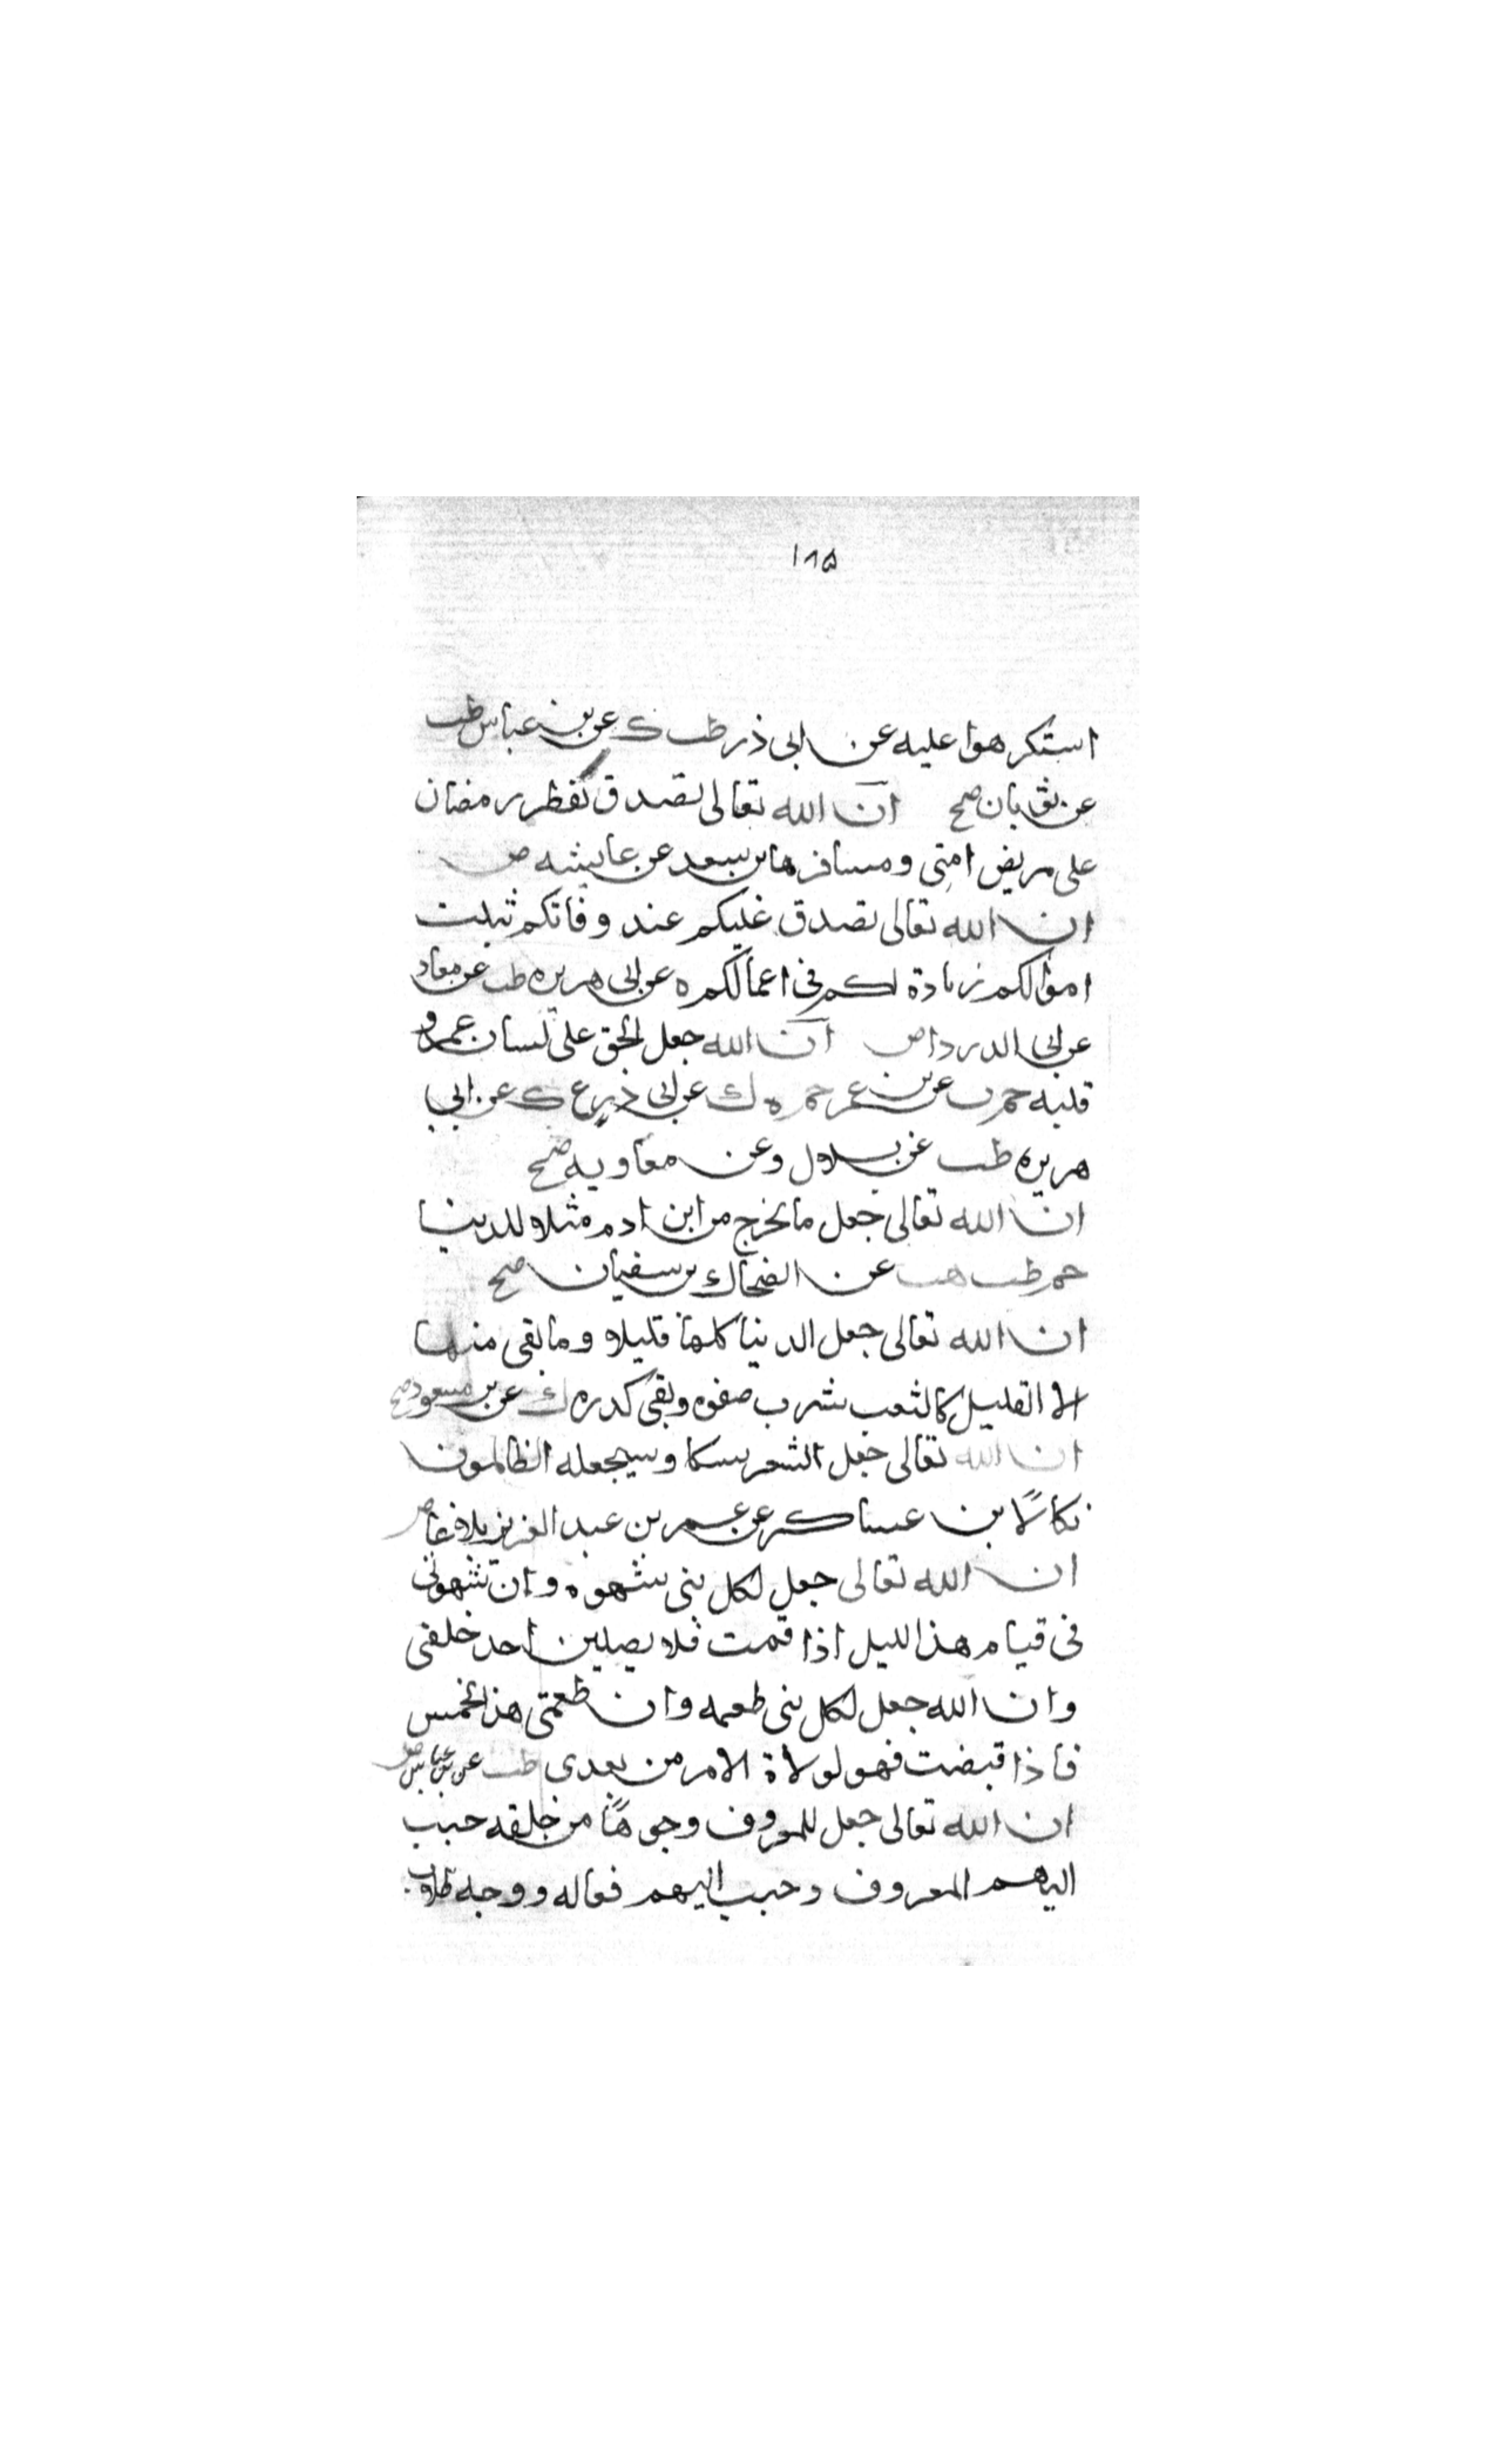 ١٨٥
استكرهوا عليه عن ابى ذر طب ك عن بن عباس طب
عن ثوبان صح ان الله تعالى تصدق بفطر رمضان
على مريض امتى ومسافرها بن سعد عن عايشه ض
ان الله تعالى تصدق عليكم عند وفاتكم بثلث
اموالكم زيادة لكم فى اعمالكم ه عن ابى هريره طب عن معاذ
عن ابى الدرداض ان الله جعل الحق على لسان عمر و
قلبه حم ت عن بن عمر حم د ك عن ابى ذر ع ك عن ابي
هريره طب عن بلال وعن معاويه صح
ان الله تعالى جعل ما يخرج من ابن ادم مثلا للدينا
حم طب هب عن الضحاك بن سفيان صح
ان الله تعالى جعل الدينا كلها قليلا وما بقى منها
الا القليل كالثعب شرب صفوه وبقى كدره ك عن بن مسعود صح
ان الله تعالى جعل الشعر نسكا وسيجعله الظالمون
نكالًا بن عساكر عن عمر بن عبد العزيز بلاغا ض
ان الله تعالى جعل لكل نبى شهوه وان شهوتى
فى قيام هذا الليل اذا قمت فلا يصلين احد خلفى
وان الله جعل لكل نبى طعمه وان طعمتى هذا الخمس
فاذا قبضت فهو لولاة الامر من بعدى طب عن بن عباس ض
ان الله تعالى جعل للمعروف وجوهًا من خلقه حبب
اليهم المعروف وحبب اليهم فعاله ووجه طلاب